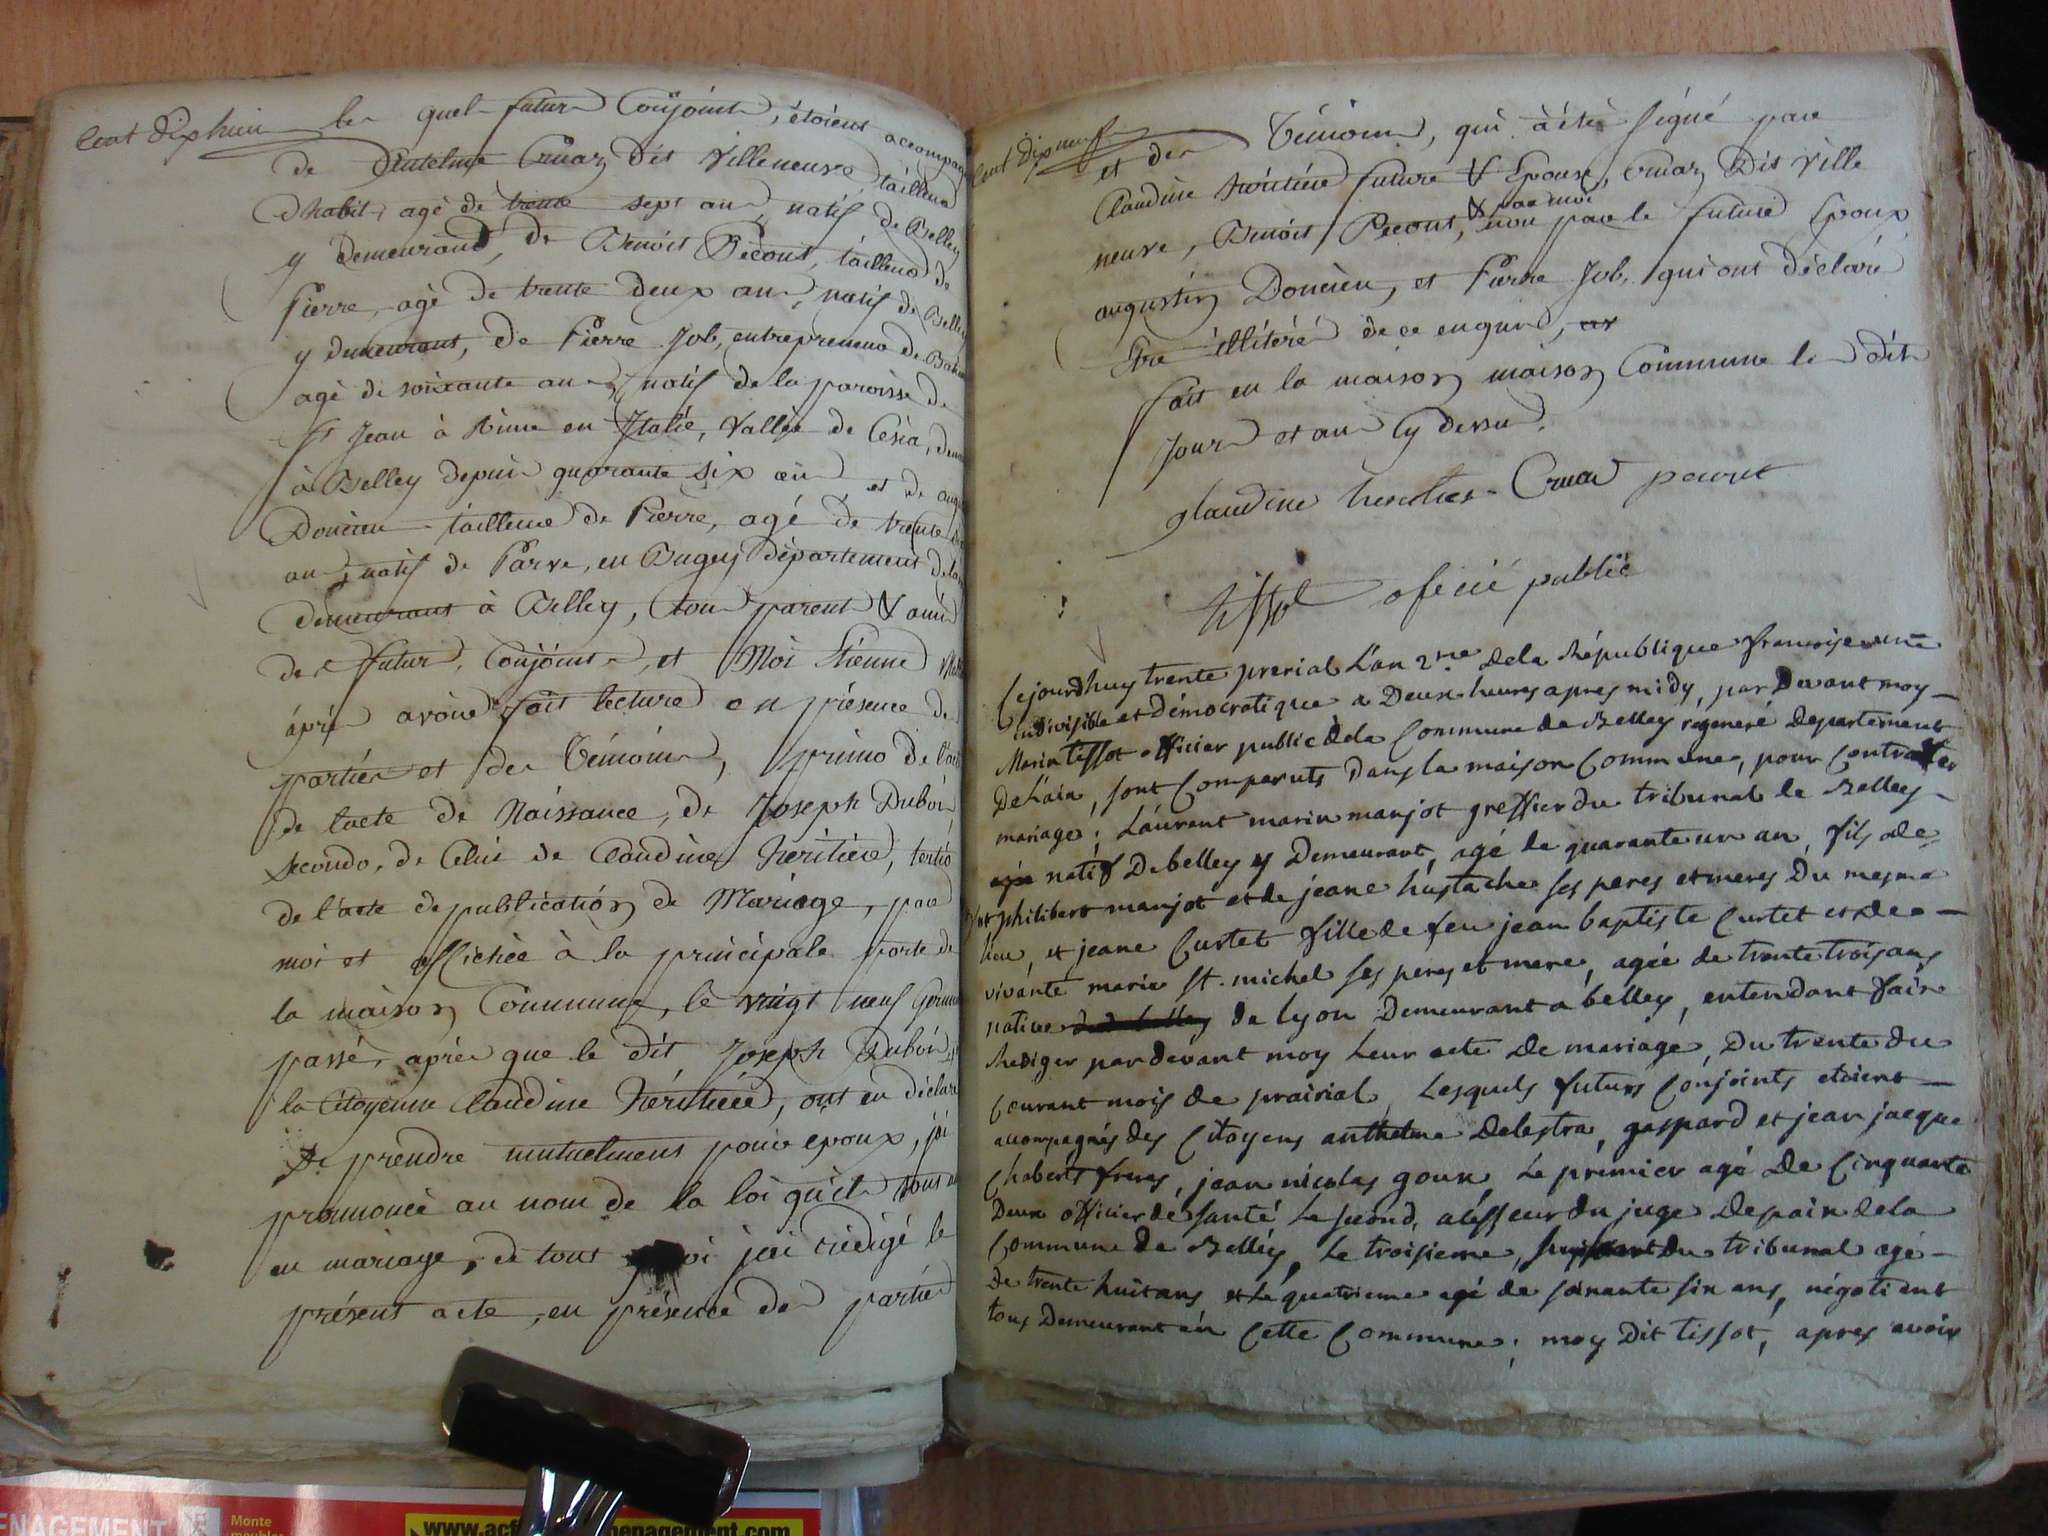 Cent dix huit
les quel futur Conjoints, étoient accompagn
de Anthelme Cruaz dit Villeneuve, tailleur
d'habit, agé de trente sept ans, natif de Belley
y demeurand, de Benoit Pecout, tailleur de
Pierre, agé de trente deux ans, natif de Belley
y demeurant, de Pierre Job, entrepreneur de
agé de soixante ans, natif de la paroisse de
St Jean à Rima en Italie, Vallée de Césia, dem
à Belley depuis quarante six ans et de augu
Doucieu tailleur de Pierre, agé de trente
ans, natif de Parve, en Bugey département de
demeurant à Belley, tous parent & amis
des futur Conjoints, et Moi Etienne
après avoir fait lecture en présence des
parties et des Témoins, primo de
de l'acte de Naissance, de Joseph Dubois
secondo, de Celui de Claudine héritiére, tertio
de l'acte de publication de Mariage, par
moi et affichée à la principale porte de
la maison Commune, le vingt neuf Germin
passé, après que le dit Joseph Dubois, et
la Citoyenne Claudine héritiére, ont eu déclaré
se prendre mutuelment pour epoux, j'ai
prononcé au nom de la loi qu'ils sont unis
en mariage, de tout quoi jai rédigé le
présent acte, en présence des parties
Cent dix neuf
et des Témoins, qui à été signé par
Claudine héritiére future & Epouse, Cruaz Dit Ville
neuve, Benoit Pecout, & par moi non par le futur Epoux,
augustin Doucieu, et Pierre Job, qui ont déclaré
Etre illitéré de ce enquis,
fait en la maison maison Commune les dit
Jour et an Cy dessus.
glaudine heritier Cruaz pecout
tissot oficié public
Cejourdhuy trente prerial L'an 2me dela République francaise une
indivisible et démocratique a Deux heures apres midy, par Devant moy
Marin tissot officier public dela Commune de Belley régeneré Departement
De Lain, sont Comparuts Dans la maison Commune, pour Contracter
mariage; Laurent marin manjot greffier du tribunal de Belley
natif De belley y Demeurant, agé de quarante un an, fils de
philibert manjot et de jeane hustache ses peres et meres Du mesme
lieu, et jeane Curtet fille de feu jean baptiste Curtet et de
vivante marie St. michel ses peres et mere, agée de trente trois ans
native de lyon Demeurant a belley, entendant faire
Rediger pardevant moy Leur acte De mariage, Du trente du
Courant mois de prairial, Lesquels futurs Conjoints etoient
accompagnés des Citoyens anthelme Delestra, gaspard et jean jacque
Chabert freres, jean nicolas goux, Le prémier agé De Cinquante
Deux officier dé santé Le second, aséssseur du juge De paix de la
Commune de Belley, Le troisieme, du tribunal agé
De trente huit ans, et Le quatrieme agé de soixante six ans, négotient
tous Demeurant en Cette Commune; moy Dit tissot, apres avoir
www.ac
enagement.com
ENAGEMENT
Monte